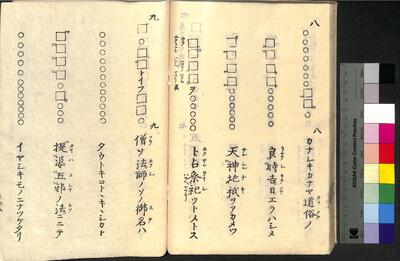 八
八 カナシキカナヤ道俗ノ
良時吉日エラハシメ
天神地祇ヲアカメツヽ
ヲ
卜占祭祀ツトメトス
九
トイフ
九 僧ソ法師ノソノ御名ハ
タウトキコトヽキヽシカト
提婆五邪ノ法ニニテ
イヤシキモノニナツケタリ